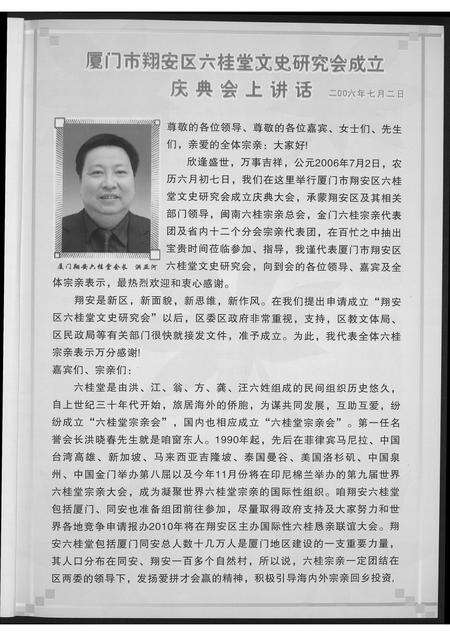 厦门市翔安区六桂堂文史研究会成立
庆典会上讲话 二00六年七月二日
尊敬的各位领导、尊敬的各位嘉宾、女士们、先生
们，亲爱的全体宗亲：大家好！
欣逢盛世，万事吉祥，公元2006年7月2日，农
历六月初七日，我们在这里举行厦门市翔安区六桂
堂文史研究会成立庆典大会，承蒙翔安区及其相关
部门领导，闽南六桂宗亲总会，金门六桂宗亲代表
团及省内十二个分会宗亲代表团，在百忙之中抽出
宝贵时间莅临参加、指导，我谨代表厦门市翔安区
厦门翔安六桂堂会长 洪亚河
六桂堂文史研究会，向到会的各位领导、嘉宾及全
体宗亲表示，最热烈欢迎和衷心感谢。
翔安是新区，新面貌，新思维，新作风。在我们提出申请成立“翔安
区六桂堂文史研究会”以后，区委区政府非常重视，支持，区教文体局、
区民政局等有关部门很快就接发文件，准予成立。为此，我代表全体六桂
宗亲表示万分感谢!
嘉宾们、宗亲们：
六桂堂是由洪、江、翁、方、龚、汪六姓组成的民间组织历史悠久，
自上世纪三十年代开始，旅居海外的侨胞，为谋共同发展，互助互爱，纷
纷成立“六桂堂宗亲会”，国内也相应成立“六桂堂宗亲会”。第一任名
誉会长洪晓春先生就是咱窗东人。1990年起，先后在菲律宾马尼拉、中国
台湾高雄、新加坡、马来西亚吉隆坡、泰国曼谷、美国洛杉矶、中国泉
州、中国金门举办第八届以及今年11月份将在印尼棉兰举办的第九届世界
六桂堂宗亲大会，成为凝聚世界六桂堂宗亲的国际性组织。咱翔安六桂堂
包括厦门、同安也准备组团前往参加，尽量取得政府支持及大家努力和世
界各地竞争申请报办2010年将在翔安区主办国际性六桂恳亲联谊大会。翔
安六桂堂包括厦门同安总人数十几万人是厦门地区建设的一支重要力量，
其人口分布在同安、翔安一百多个自然村，所以说，六桂宗亲一定团结在
区两委的领导下，发扬爱拼才会赢的精神，积极引导海内外宗亲回乡投资，